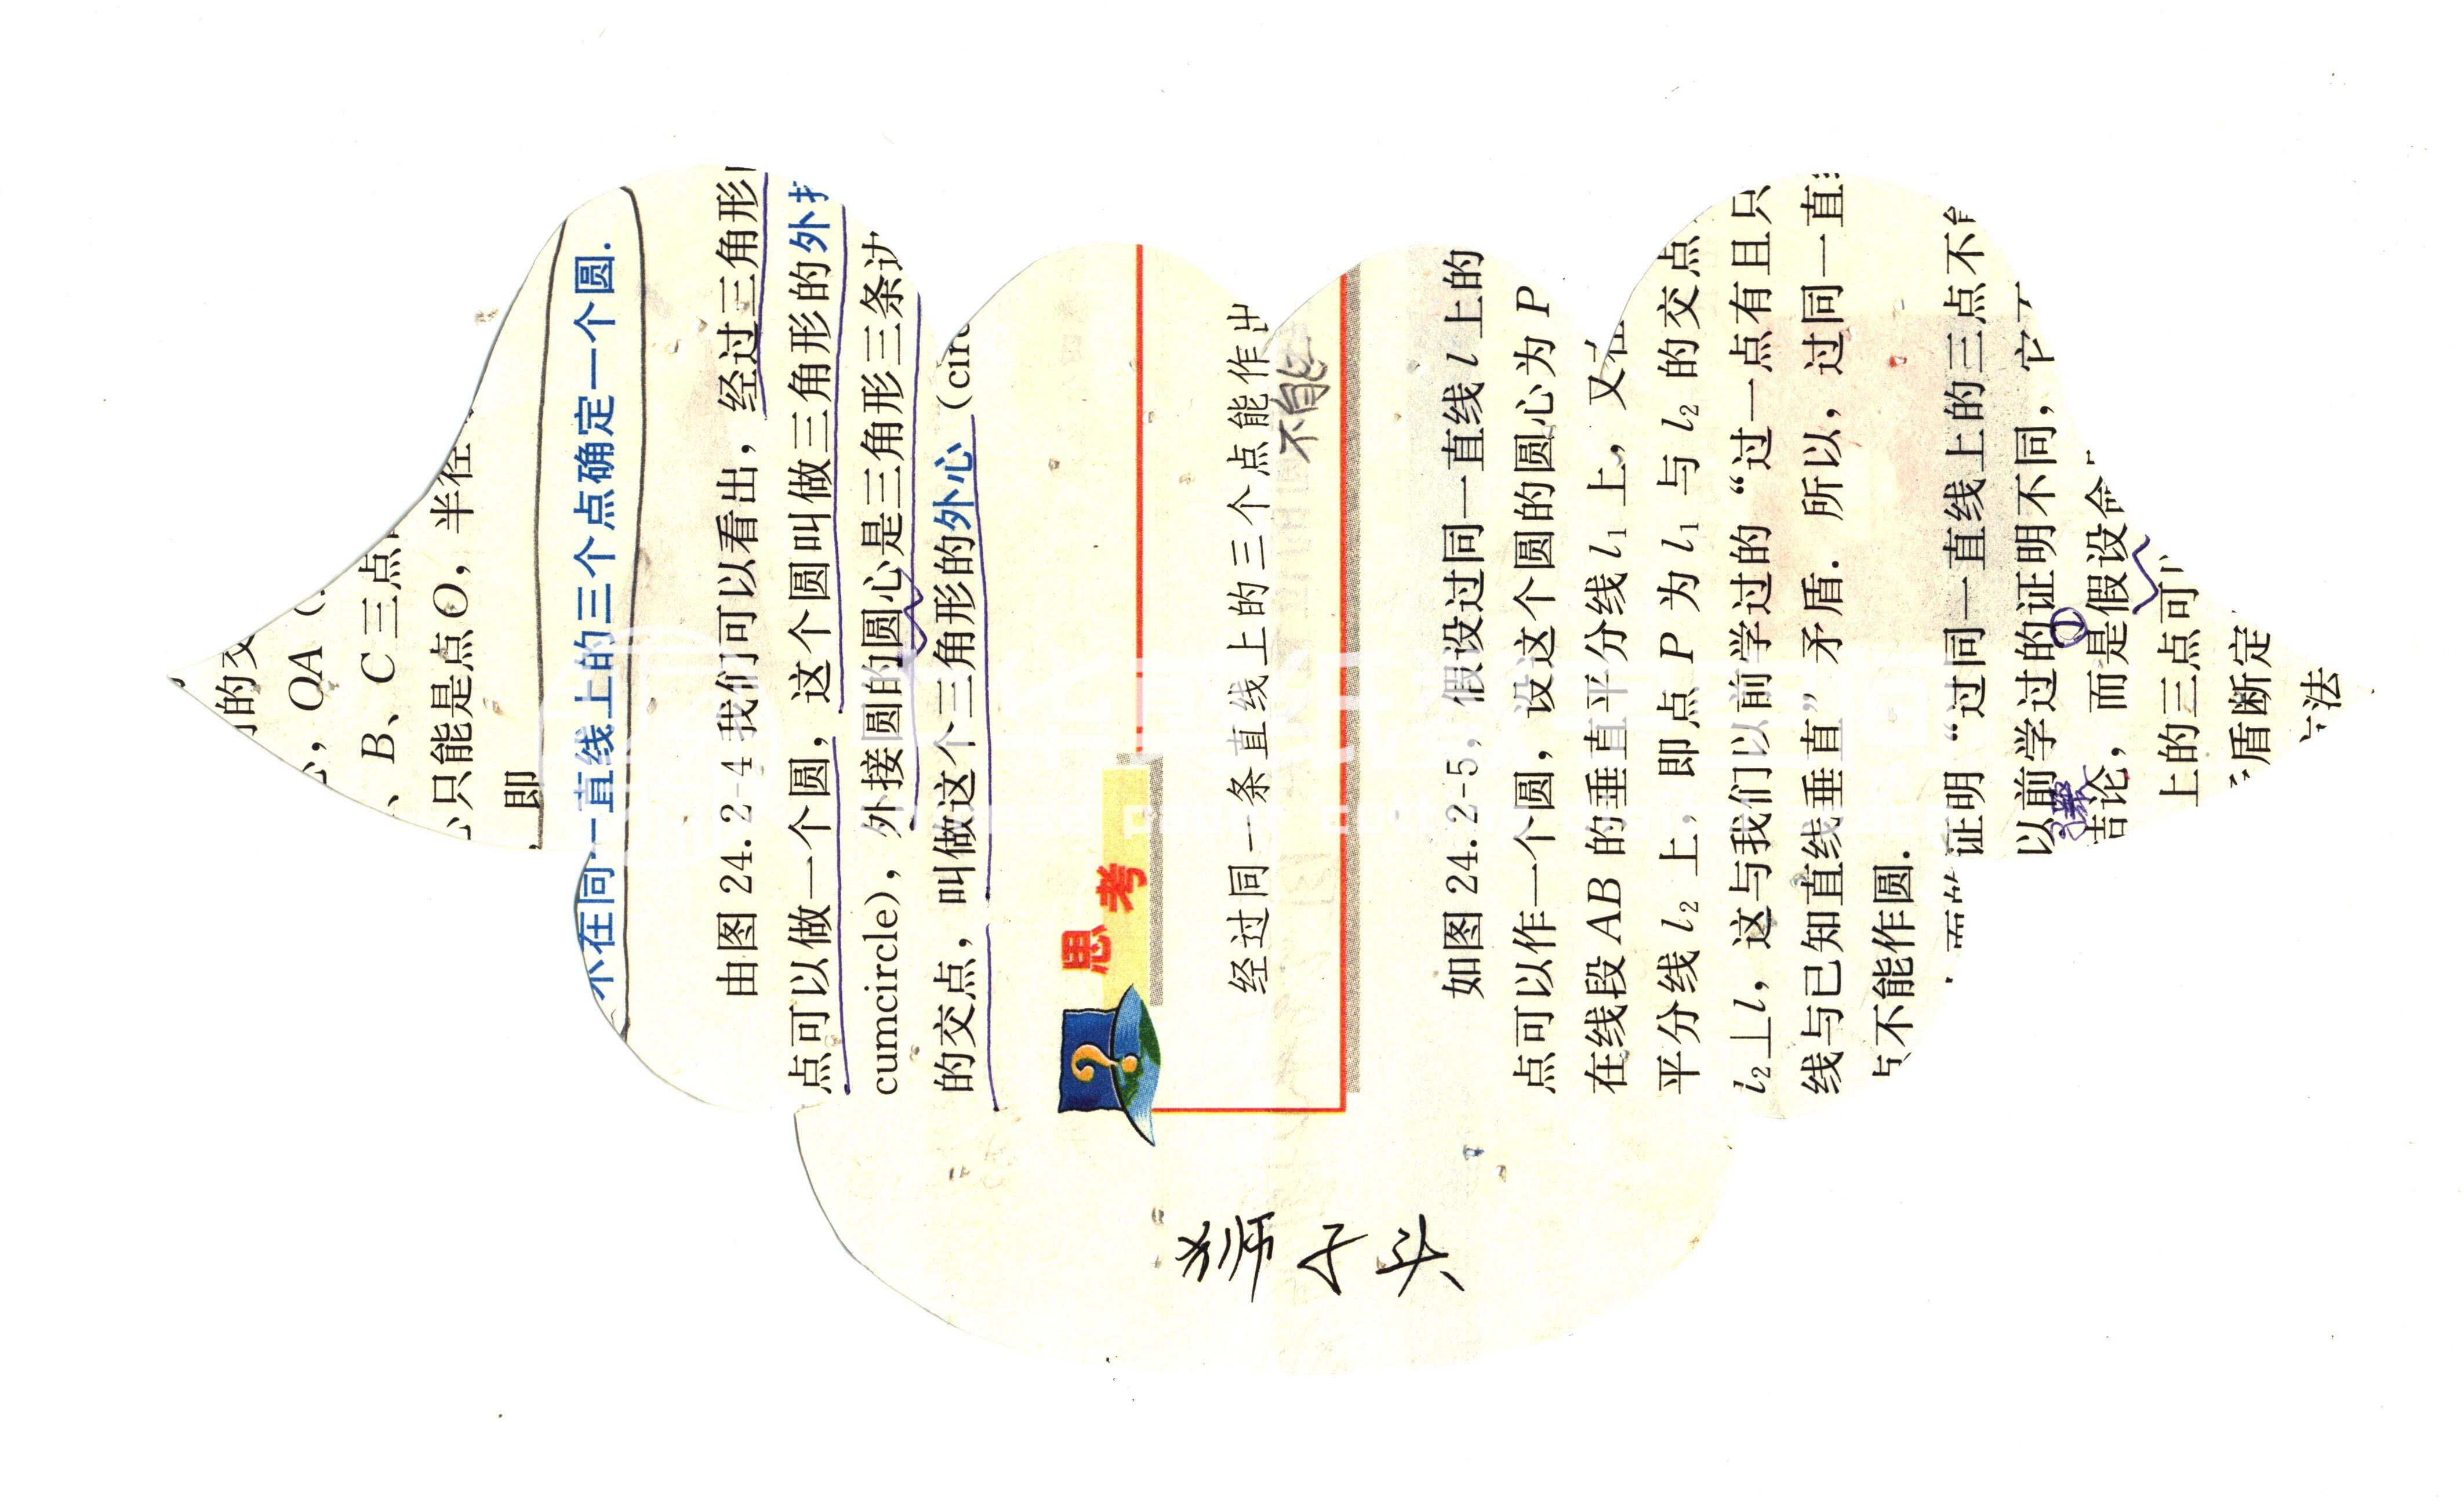 的交
, QA (
、B、C 三点
只能是点O, 半径
即
不在同一直线上的三个点确定一个圆.
由图 24.2-4 我们可以看出, 经过三角形
点可以做一个圆, 这个圆叫做三角形的外
cumcircle), 外接圆的圆心是三角形三条边
的交点, 叫做这个三角形的外心 (circ
思考
经过同一条直线上的三个点能作出
不能
如图 24.2-5, 假设过同一直线 l 上的
点可以作一个圆, 设这个圆的圆心为 P
在线段 AB 的垂直平分线 l₁ 上, 又在
平分线 l₂ 上, 即点 P 为 l₁ 与 l₂ 的交点
l₂⊥l, 这与我们以前学过的 “过一点有且只
线与已知直线垂直” 矛盾. 所以, 过同一直
与不能作圆.
证明 “过同一直线上的三点不能
以前学过的证明不同, 它
①
结论, 而是假设命
上的三点可
矛盾断定
方法
狮子头